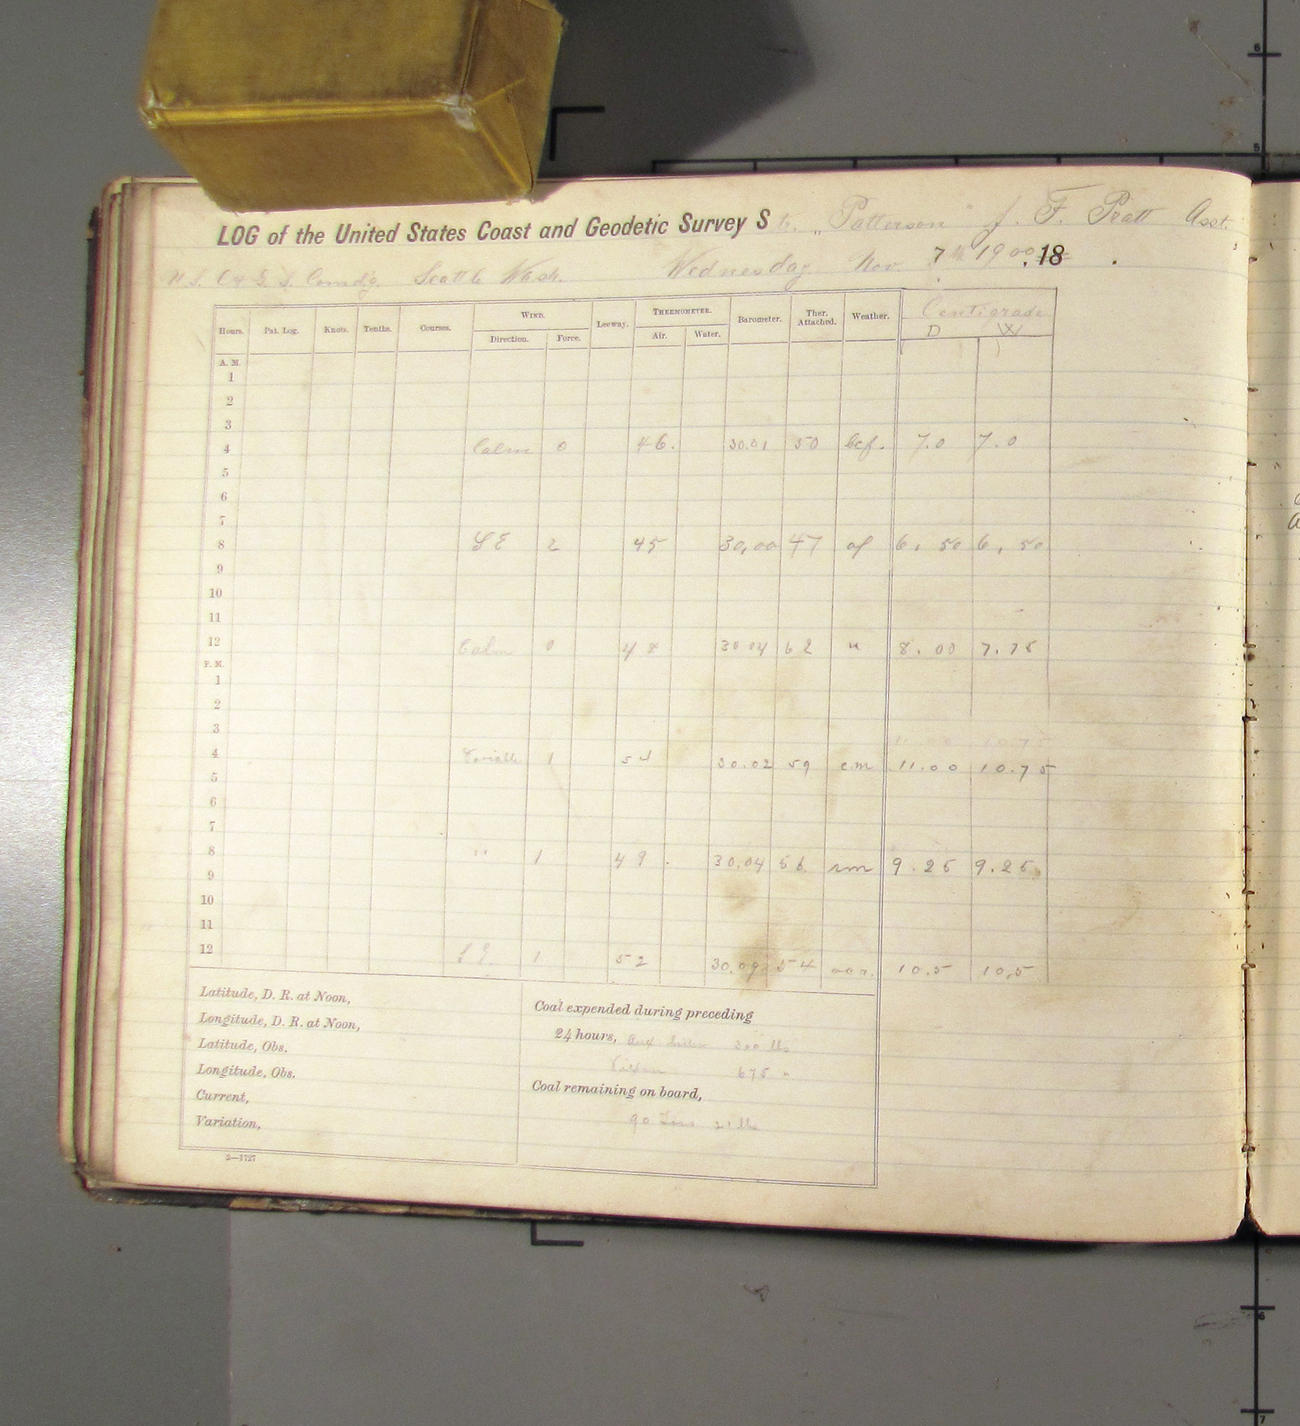 LOG of the United States Coast and Geodetic Survey Str. „Patterson" J. F. Pratt Asst.
U.S. C & G. S. Comd'g. Seattle Wash. Wednesday Nov. 7th 1900, 18
Hours. Pat. Log. Knots. Tenths. Courses. WIND. Leeway. THERMOMETER. Barometer. Ther. Attached. Weather. Centigrade
Direction. Force. Air. Water. D W
A. M.
1
2
3
4 Calm 0 46. 30.01 50 bcf. 7.0 7.0
5
6
7
8 SE 2 45 30,00 47 of 6. 50 6. 50
9
10
11
12 Calm 0 48 30 04 62 " 8. 00 7.75
P. M.
1
2
3
4 Variable 1 54 30.02 59 c.m 11.00 10.75
5
6
7
8 " 1 49 30.04 56 rm 9.25 9.25
9
10
11
12 S E. 1 52 30.09 54 10.5 10.5
Latitude, D. R. at Noon,
Longitude, D. R. at Noon,
Latitude, Obs.
Longitude, Obs.
Current,
Variation,
Coal expended during preceding
24 hours, Aux boiler 300 lbs
675 "
Coal remaining on board,
90 Tons 21 lbs
2—1727
6
5
6
7